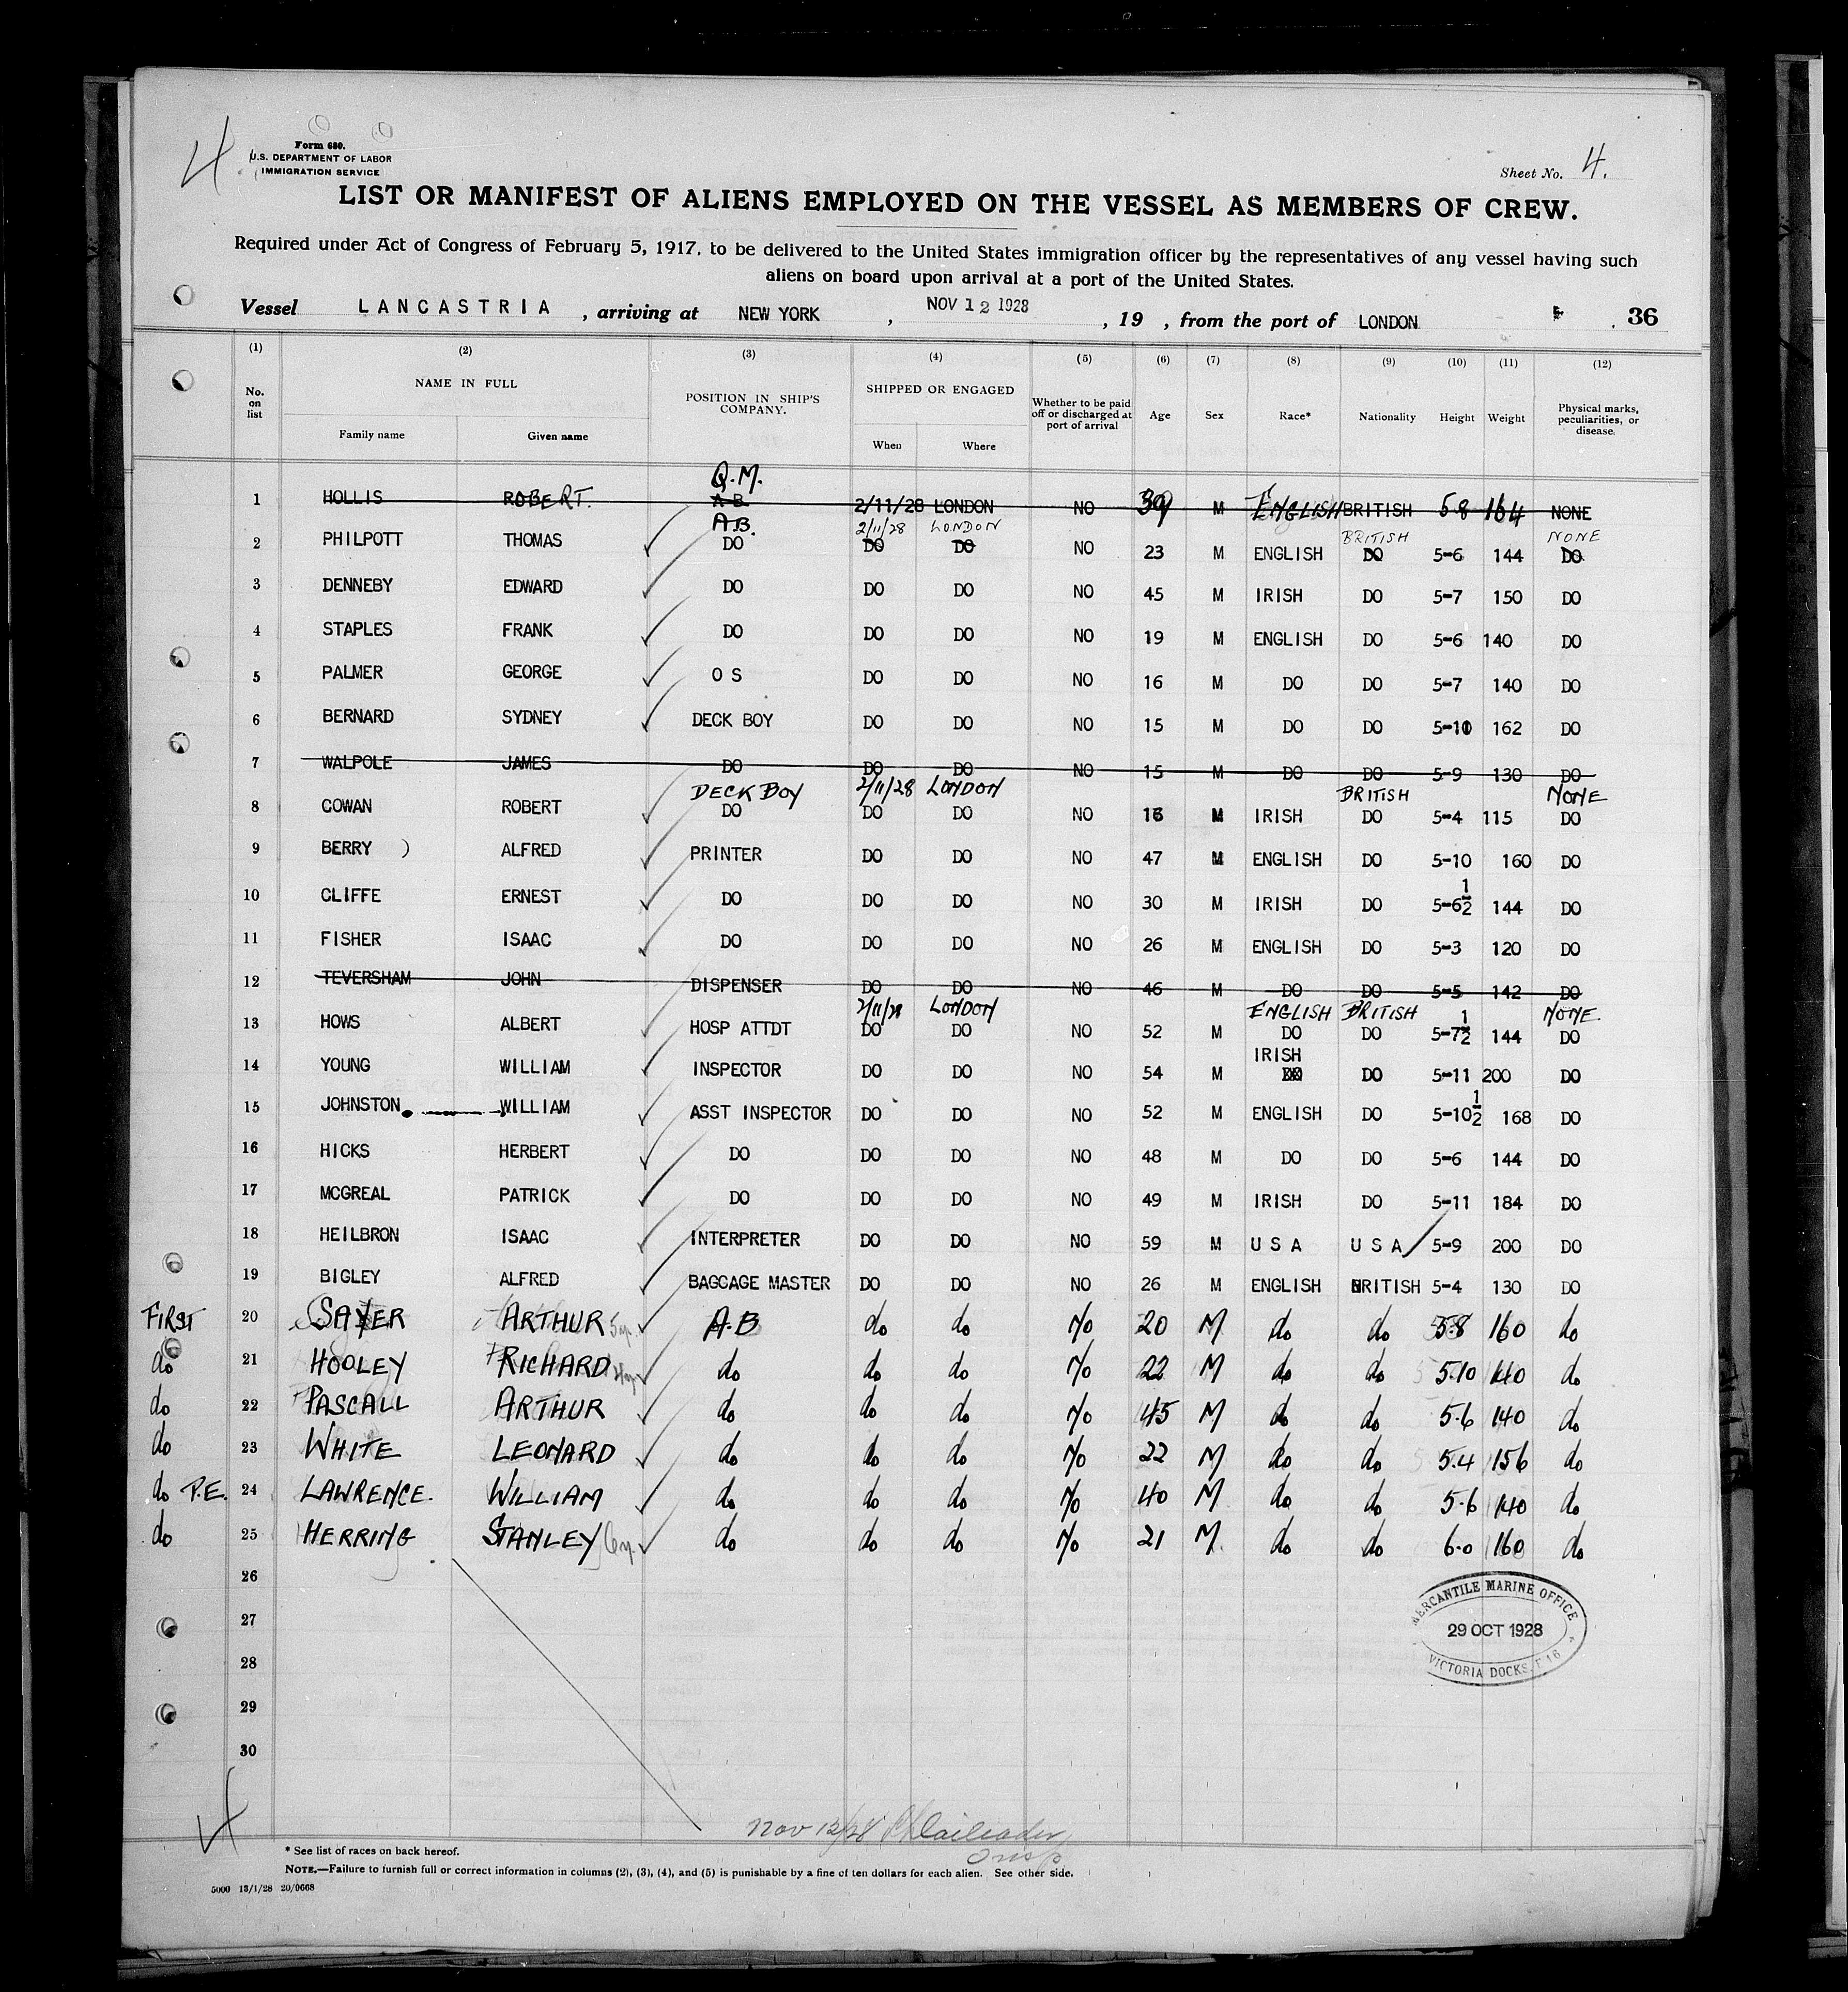 4
Form 680.
U.S. DEPARTMENT OF LABOR
IMMIGRATION SERVICE
Sheet No. 4.
LIST OR MANIFEST OF ALIENS EMPLOYED ON THE VESSEL AS MEMBERS OF CREW.
Required under Act of Congress of February 5, 1917, to be delivered to the United States immigration officer by the representatives of any vessel having such
aliens on board upon arrival at a port of the United States.
Vessel LANCASTRIA , arriving at NEW YORK , NOV 12 1928 , 19 , from the port of LONDON 36
(1) (2) (3) (4) (5) (6) (7) (8) (9) (10) (11) (12)
No. on list NAME IN FULL Family name Given name POSITION IN SHIP'S COMPANY. SHIPPED OR ENGAGED When Where Whether to be paid off or discharged at port of arrival Age Sex Race* Nationality Height Weight Physical marks, peculiarities, or disease.
Q.M.
1 HOLLIS ROBERT. A B 2/11/28 LONDON NO 39 M ENGLISH BRITISH 5 8 164 NONE
A.B. 2/11/28 LONDON BRITISH NONE
2 PHILPOTT THOMAS DO DO DO NO 23 M ENGLISH DO 5-6 144 DO
3 DENNEBY EDWARD DO DO DO NO 45 M IRISH DO 5-7 150 DO
4 STAPLES FRANK DO DO DO NO 19 M ENGLISH DO 5-6 140 DO
5 PALMER GEORGE O S DO DO NO 16 M DO DO 5-7 140 DO
6 BERNARD SYDNEY DECK BOY DO DO NO 15 M DO DO 5-10 162 DO
7 WALPOLE JAMES DO DO DO NO 15 M DO DO 5-9 130 DO
DECK BOY 2/11/28 LONDON BRITISH NONE
8 COWAN ROBERT DO DO DO NO 16 M IRISH DO 5-4 115 DO
9 BERRY ) ALFRED PRINTER DO DO NO 47 M ENGLISH DO 5-10 160 DO
10 CLIFFE ERNEST DO DO DO NO 30 M IRISH DO 5-6½ 144 DO
11 FISHER ISAAC DO DO DO NO 26 M ENGLISH DO 5-3 120 DO
12 TEVERSHAM JOHN DISPENSER DO DO NO 46 M DO DO 5-5 142 DO
2/11/28 LONDON ENGLISH BRITISH NONE.
13 HOWS ALBERT HOSP ATTDT DO DO NO 52 M DO DO 5-7½ 144 DO
IRISH
14 YOUNG WILLIAM INSPECTOR DO DO NO 54 M DO DO 5-11 200 DO
15 JOHNSTON WILLIAM ASST INSPECTOR DO DO NO 52 M ENGLISH DO 5-10½ 168 DO
16 HICKS HERBERT DO DO DO NO 48 M DO DO 5-6 144 DO
17 MCGREAL PATRICK DO DO DO NO 49 M IRISH DO 5-11 184 DO
18 HEILBRON ISAAC INTERPRETER DO DO NO 59 M U S A U S A 5-9 200 DO
19 BIGLEY ALFRED BAGCAGE MASTER DO DO NO 26 M ENGLISH BRITISH 5-4 130 DO
FIRST 20 SAYER ARTHUR A.B do do No 20 M do do 5.8 160 do
do 21 HOOLEY RICHARD do do do No 22 M do do 5.10 140 do
do 22 PASCALL ARTHUR do do do No 45 M do do 5.6 140 do
do 23 WHITE LEONARD do do do No 22 M do do 5.4 156 do
do P.E. 24 LAWRENCE. WILLIAM do do do No 40 M do do 5.6 140 do
do 25 HERRING STANLEY do do do No 21 M. do do 6.0 160 do
26
27
28
29
30
MERCANTILE MARINE OFFICE
29 OCT 1928
VICTORIA DOCKS. E 16
Nov 12/28
* See list of races on back hereof.
NOTE.—Failure to furnish full or correct information in columns (2), (3), (4), and (5) is punishable by a fine of ten dollars for each alien. See other side.
5000 13/1/28 20/9668